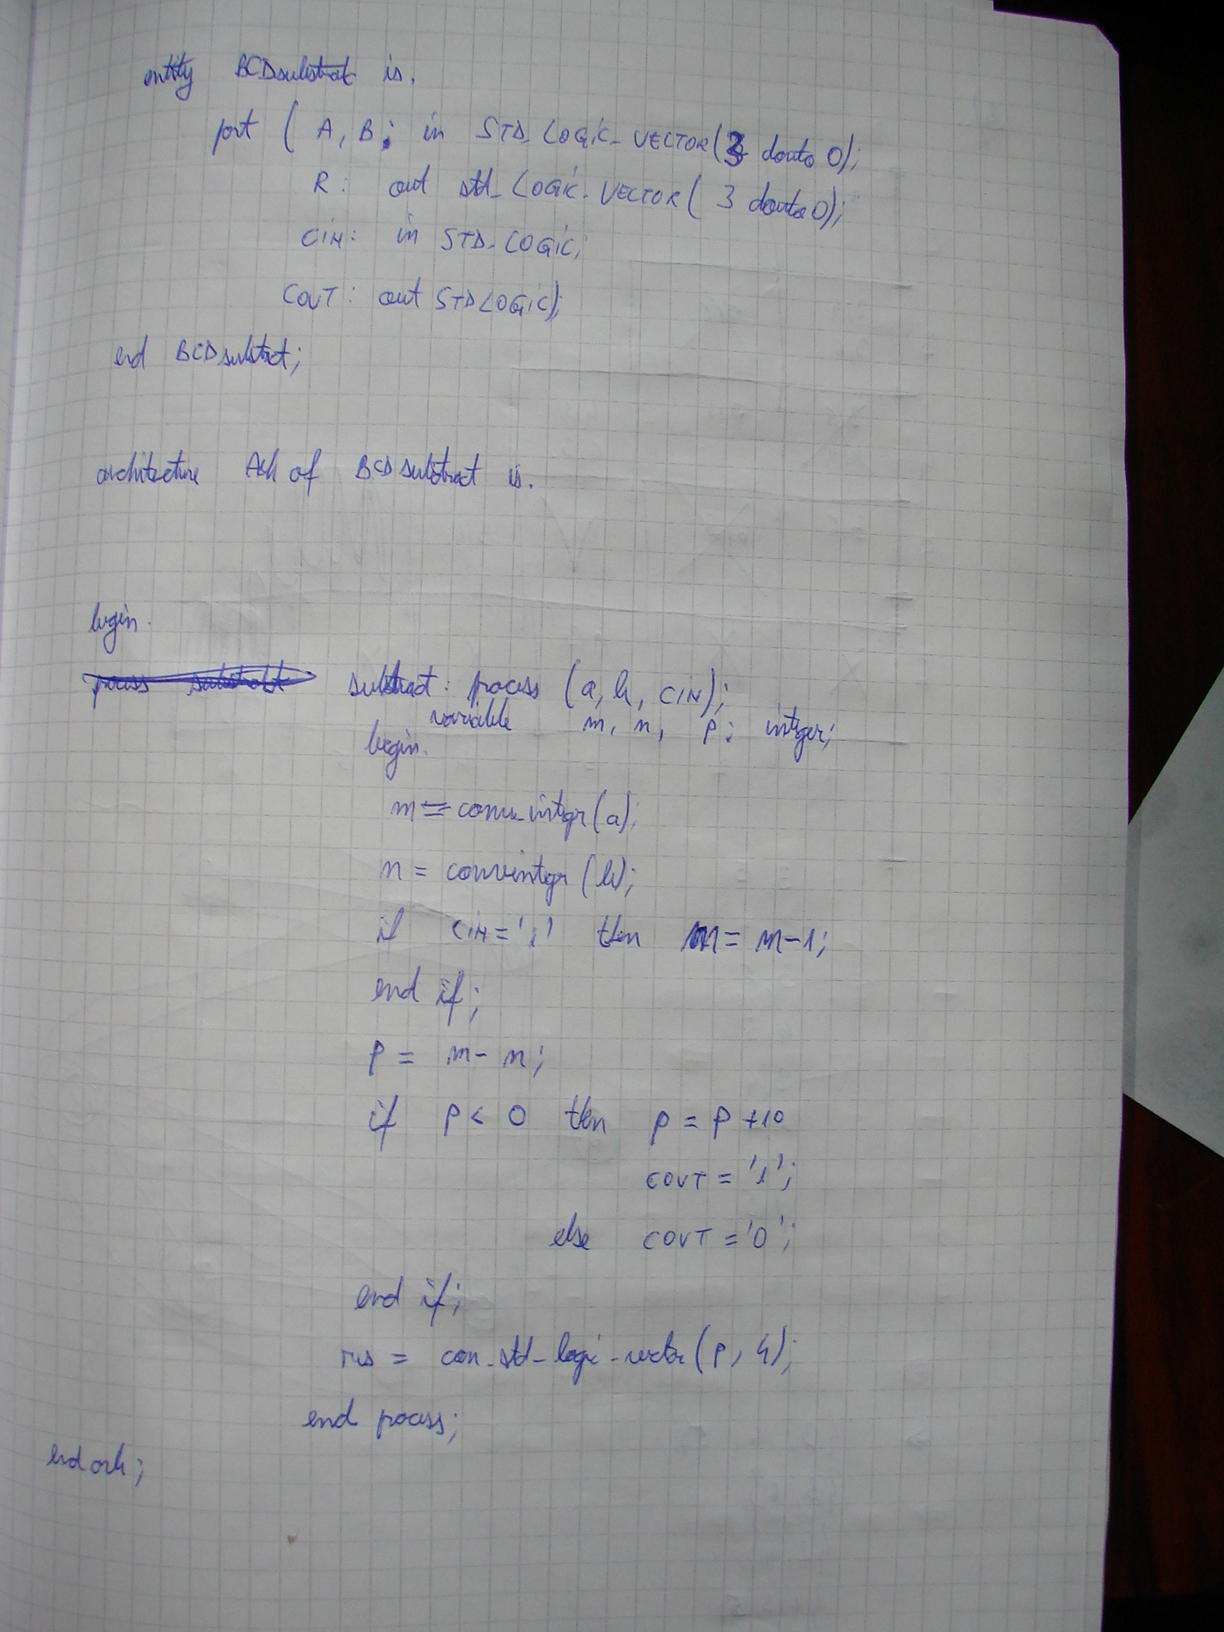 entity BCDsubstrat is.
port ( A, B: in STD_LOGIC_VECTOR(3 downto 0);
R: out std_LOGIC_VECTOR( 3 downto 0);
CIN: in STD_LOGIC;
COUT: out STDLOGIC);
end BCDsubstract;
architecture Ach of BCDsubstract is.
begin.
substract: process (a, b, CIN);
variable m, n, p: integer;
begin.
m = conv_integer(a);
n = convinteger(b);
if CIN='1' then m = m-1;
end if;
P = m-n;
if p < 0 then p = p +10
COUT = '1';
else COUT = '0';
end if;
res = con_std_logic_vector(p, 4);
end process;
end arch;